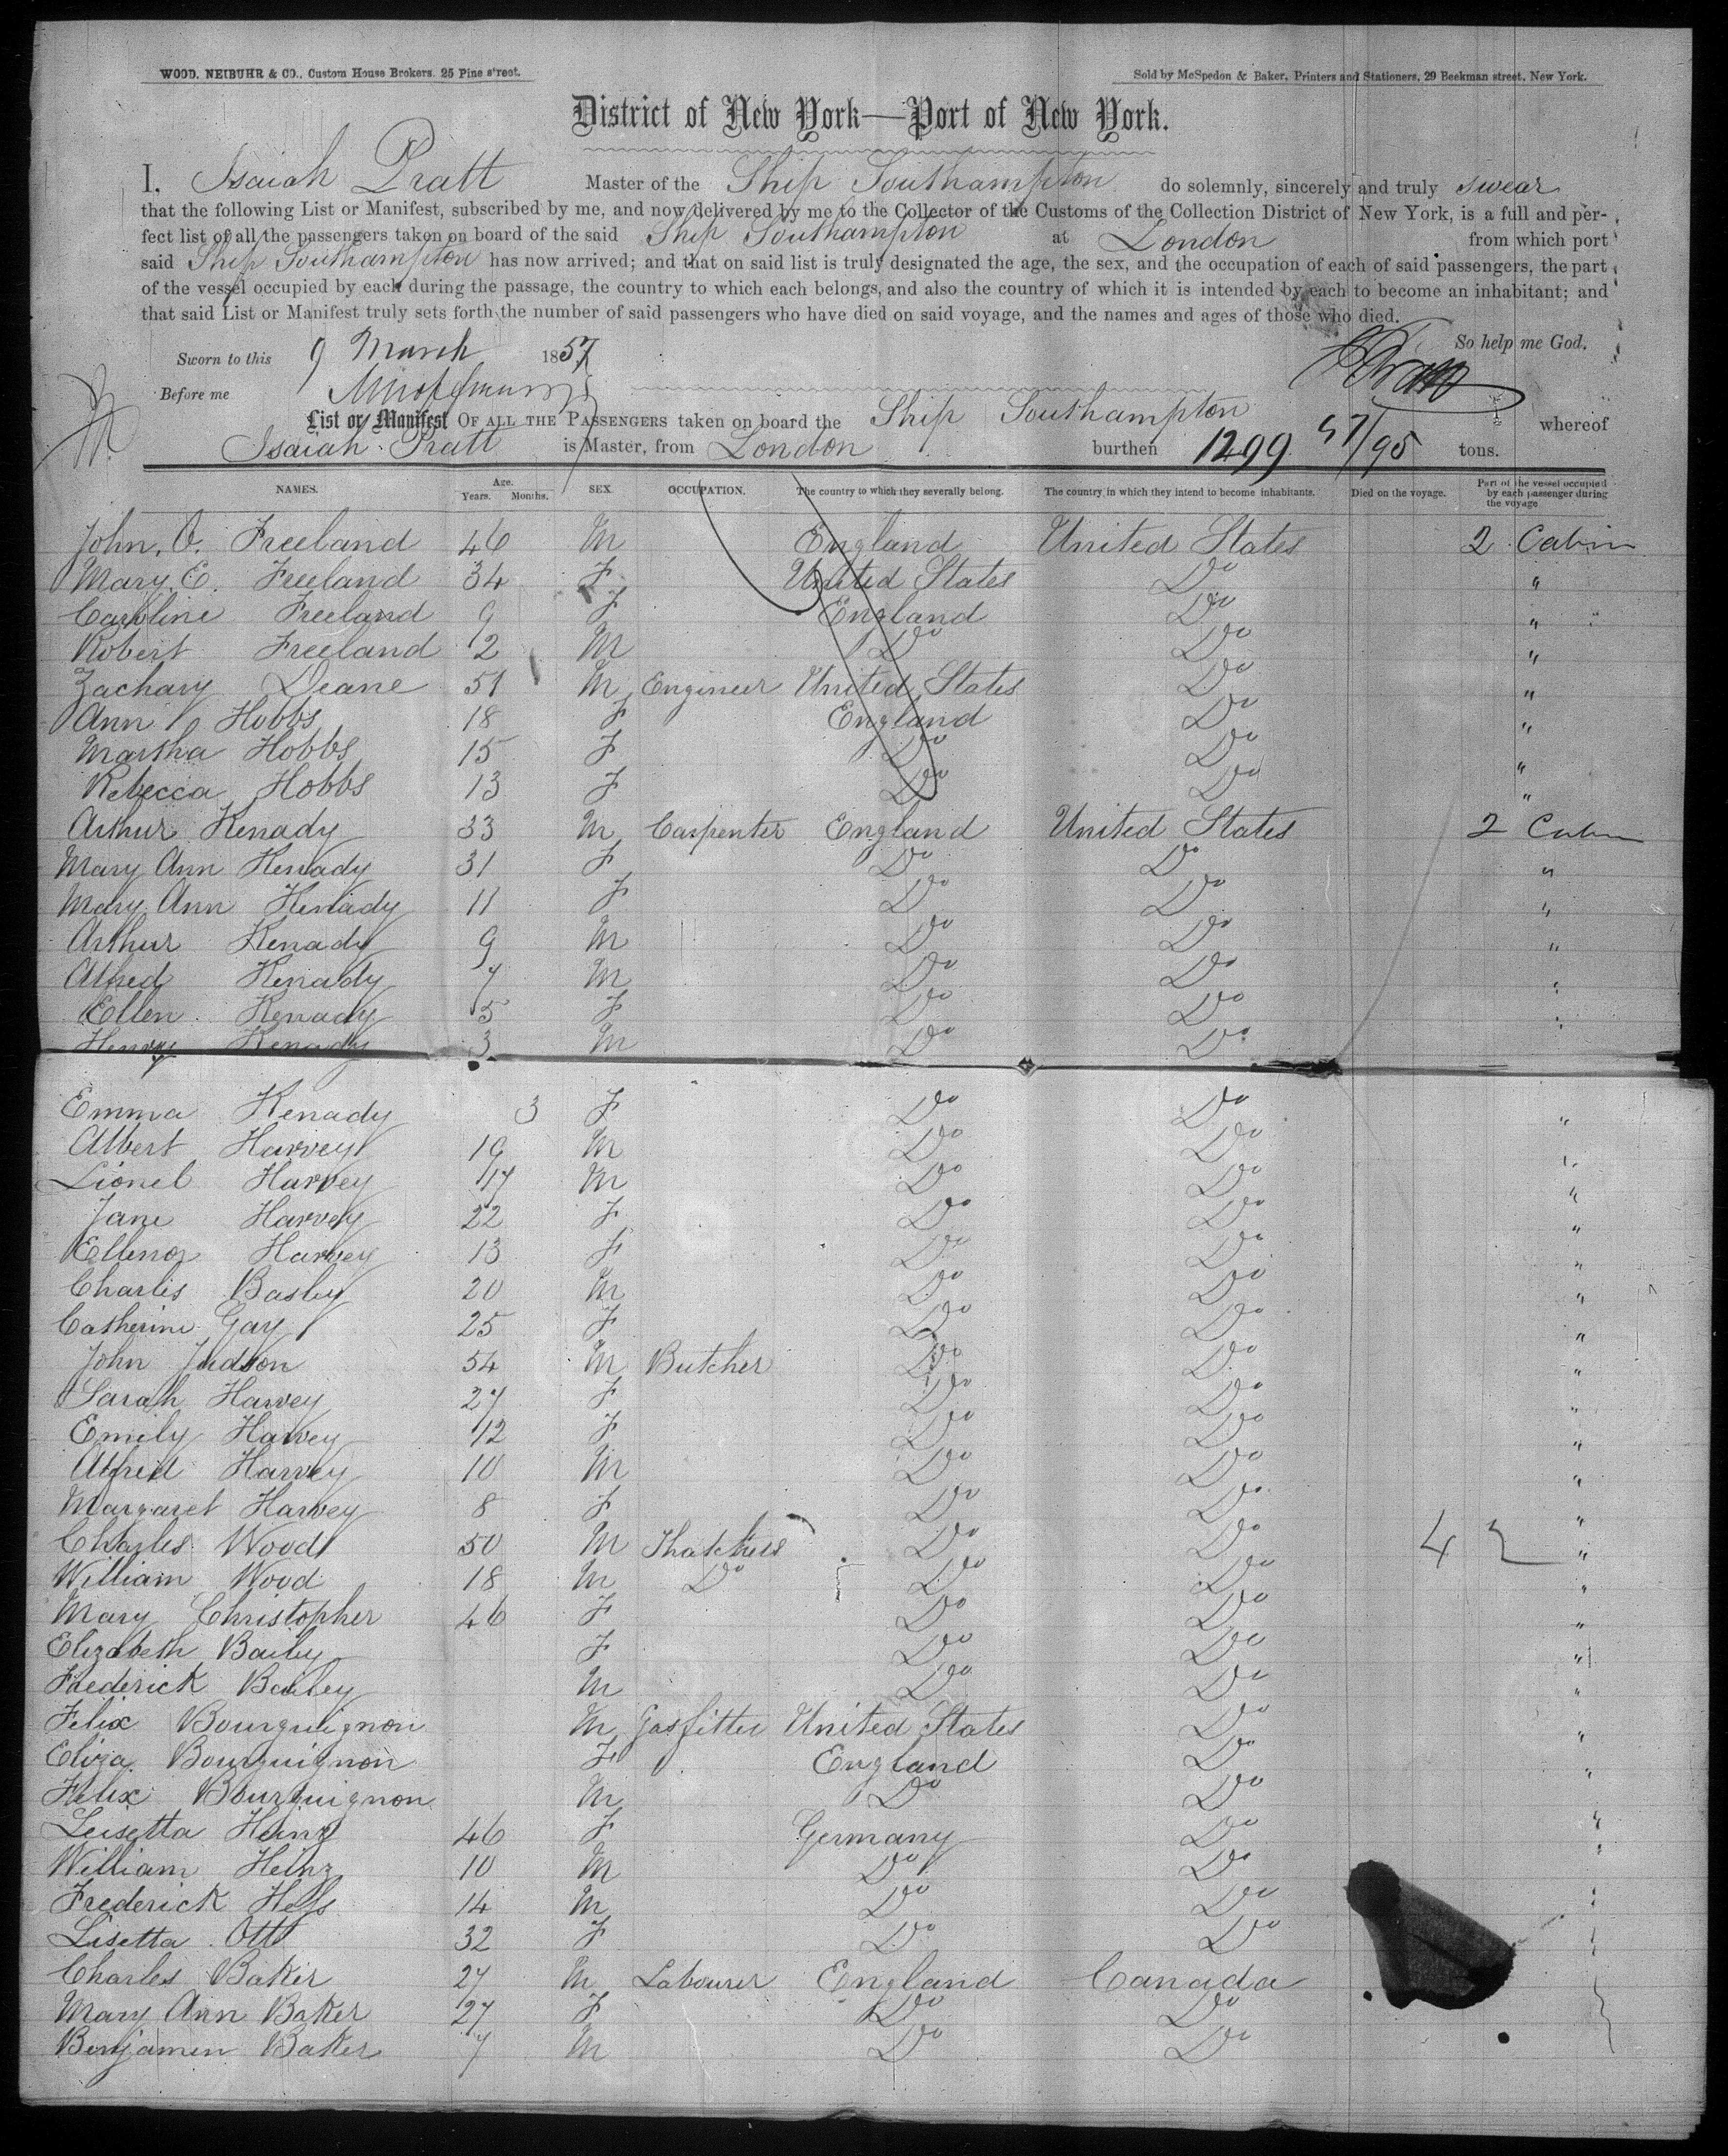 WOOD, NEIBUHR & CO., Custom House Brokers. 25 Pine street.
Sold by McSpedon & Baker, Printers and Stationers, 29 Beekman street, New York.
District of New York—Port of New York.
I, Isaiah Pratt Master of the Ship Southampton do solemnly, sincerely and truly swear
that the following List or Manifest, subscribed by me, and now delivered by me to the Collector of the Customs of the Collection District of New York, is a full and per-
fect list of all the passengers taken on board of the said Ship Southampton at London from which port
said Ship Southampton has now arrived; and that on said list is truly designated the age, the sex, and the occupation of each of said passengers, the part
of the vessel occupied by each during the passage, the country to which each belongs, and also the country of which it is intended by each to become an inhabitant; and
that said List or Manifest truly sets forth the number of said passengers who have died on said voyage, and the names and ages of those who died.
So help me God.
Sworn to this 9 March 1857
I Pratt
Before me
List or Manifest OF ALL THE PASSENGERS taken on board the Ship Southampton whereof
Isaiah Pratt is Master, from London burthen 1299 57/95 tons.
NAMES. Age. Years. Months. SEX. OCCUPATION. The country to which they severally belong. The country in which they intend to become inhabitants. Died on the voyage. Part of the vessel occupied by each passenger during the voyage
John. O. Freeland 46 M England United States 2 Cabin
Mary. E. Freeland 34 F United States Do "
Caroline Freeland 9 F England Do "
Robert Freeland 2 M Do Do "
Zachary Deane 51 M Engineer United States Do "
Ann Hobbs 18 F England Do "
Martha Hobbs 15 F Do Do "
Rebecca Hobbs 13 F Do Do "
Arthur Kenady 33 M Carpenter England United States 2 Cabin
Mary Ann Kenady 31 F Do Do "
Mary Ann Kenady 11 F Do Do "
Arthur Kenady 9 M Do Do "
Alfred Kenady 7 M Do Do "
Ellen Kenady 5 F Do Do "
Henry Kenady 3 M Do Do
Emma Kenady 3 F Do Do "
Albert Harvey 19 M Do Do "
Lionel Harvey 17 M Do Do "
Jane Harvey 22 F Do Do "
Ellenor Harvey 13 F Do Do "
Charlis Basley 20 M Do Do "
Catherine Gay 25 F Do Do "
John Judson 54 M Butcher Do Do "
Sarah Harvey 27 F Do Do "
Emily Harvey 12 F Do Do "
Alfred Harvey 10 M Do Do "
Margaret Harvey 8 F Do Do "
Charles Wood 50 M Thatchers Do Do 4 "
William Wood 18 M Do Do Do "
Mary Christopher 46 F Do Do "
Elizabeth Baily F Do Do "
Frederick Bailey M Do Do "
Felix Bourguignon M Gasfitter United States Do "
Eliza Bourguignon F England Do "
Felix Bourguignon M Do Do
Leisetta Heinz 46 F Germany Do "
William Heinz 10 M Do Do "
Frederick Hess 14 M Do Do "
Lisetta Ott 32 F Do Do
Charles Baker 27 M Labourer England Canada
Mary Ann Baker 27 F Do Do
Benjamen Baker 7 M Do Do